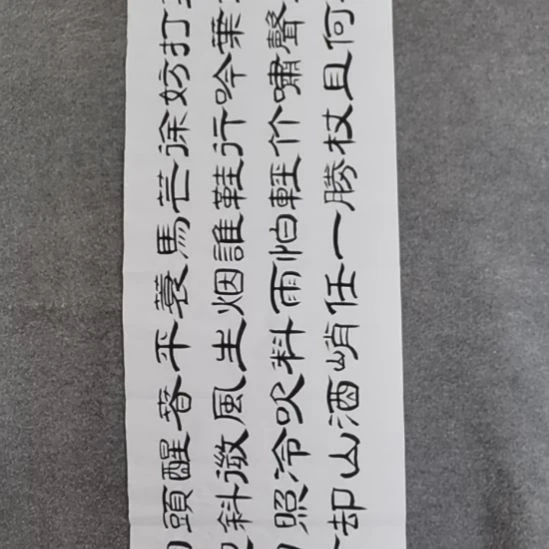 打葉聲何
妨吟嘯且
徐行竹杖
芒鞋輕勝
馬誰怕一
蓑烟雨任
平生料峭
春風吹酒
醒微冷山
頭斜照却